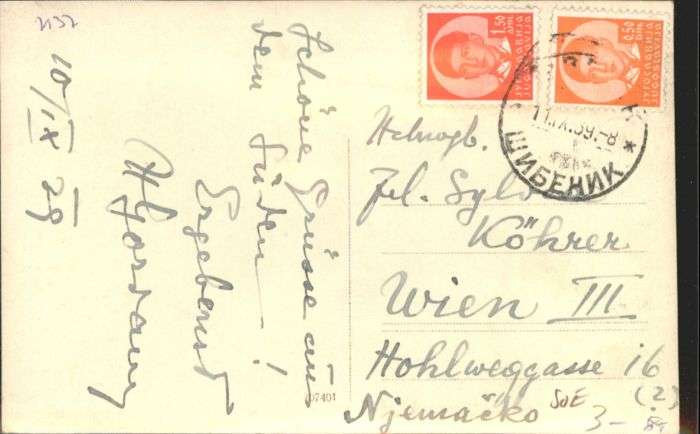 2137
10/IX 39
Schöne Grüsse aus
dem Süden!
Ergebenst
1.50
ДИН.
ЈУГОСЛАВИЈА
JUGOSLAVIJA
0.50
ДИН.
ЈУГОСЛАВИЈА
JUGOSLAVIJA
11.IX.39.-8
ШИБЕНИК *
Frl. Sylv
Köhrer
Wien III
Hohlweggasse 16
Njemačko
SoE
(2)
3-
07401